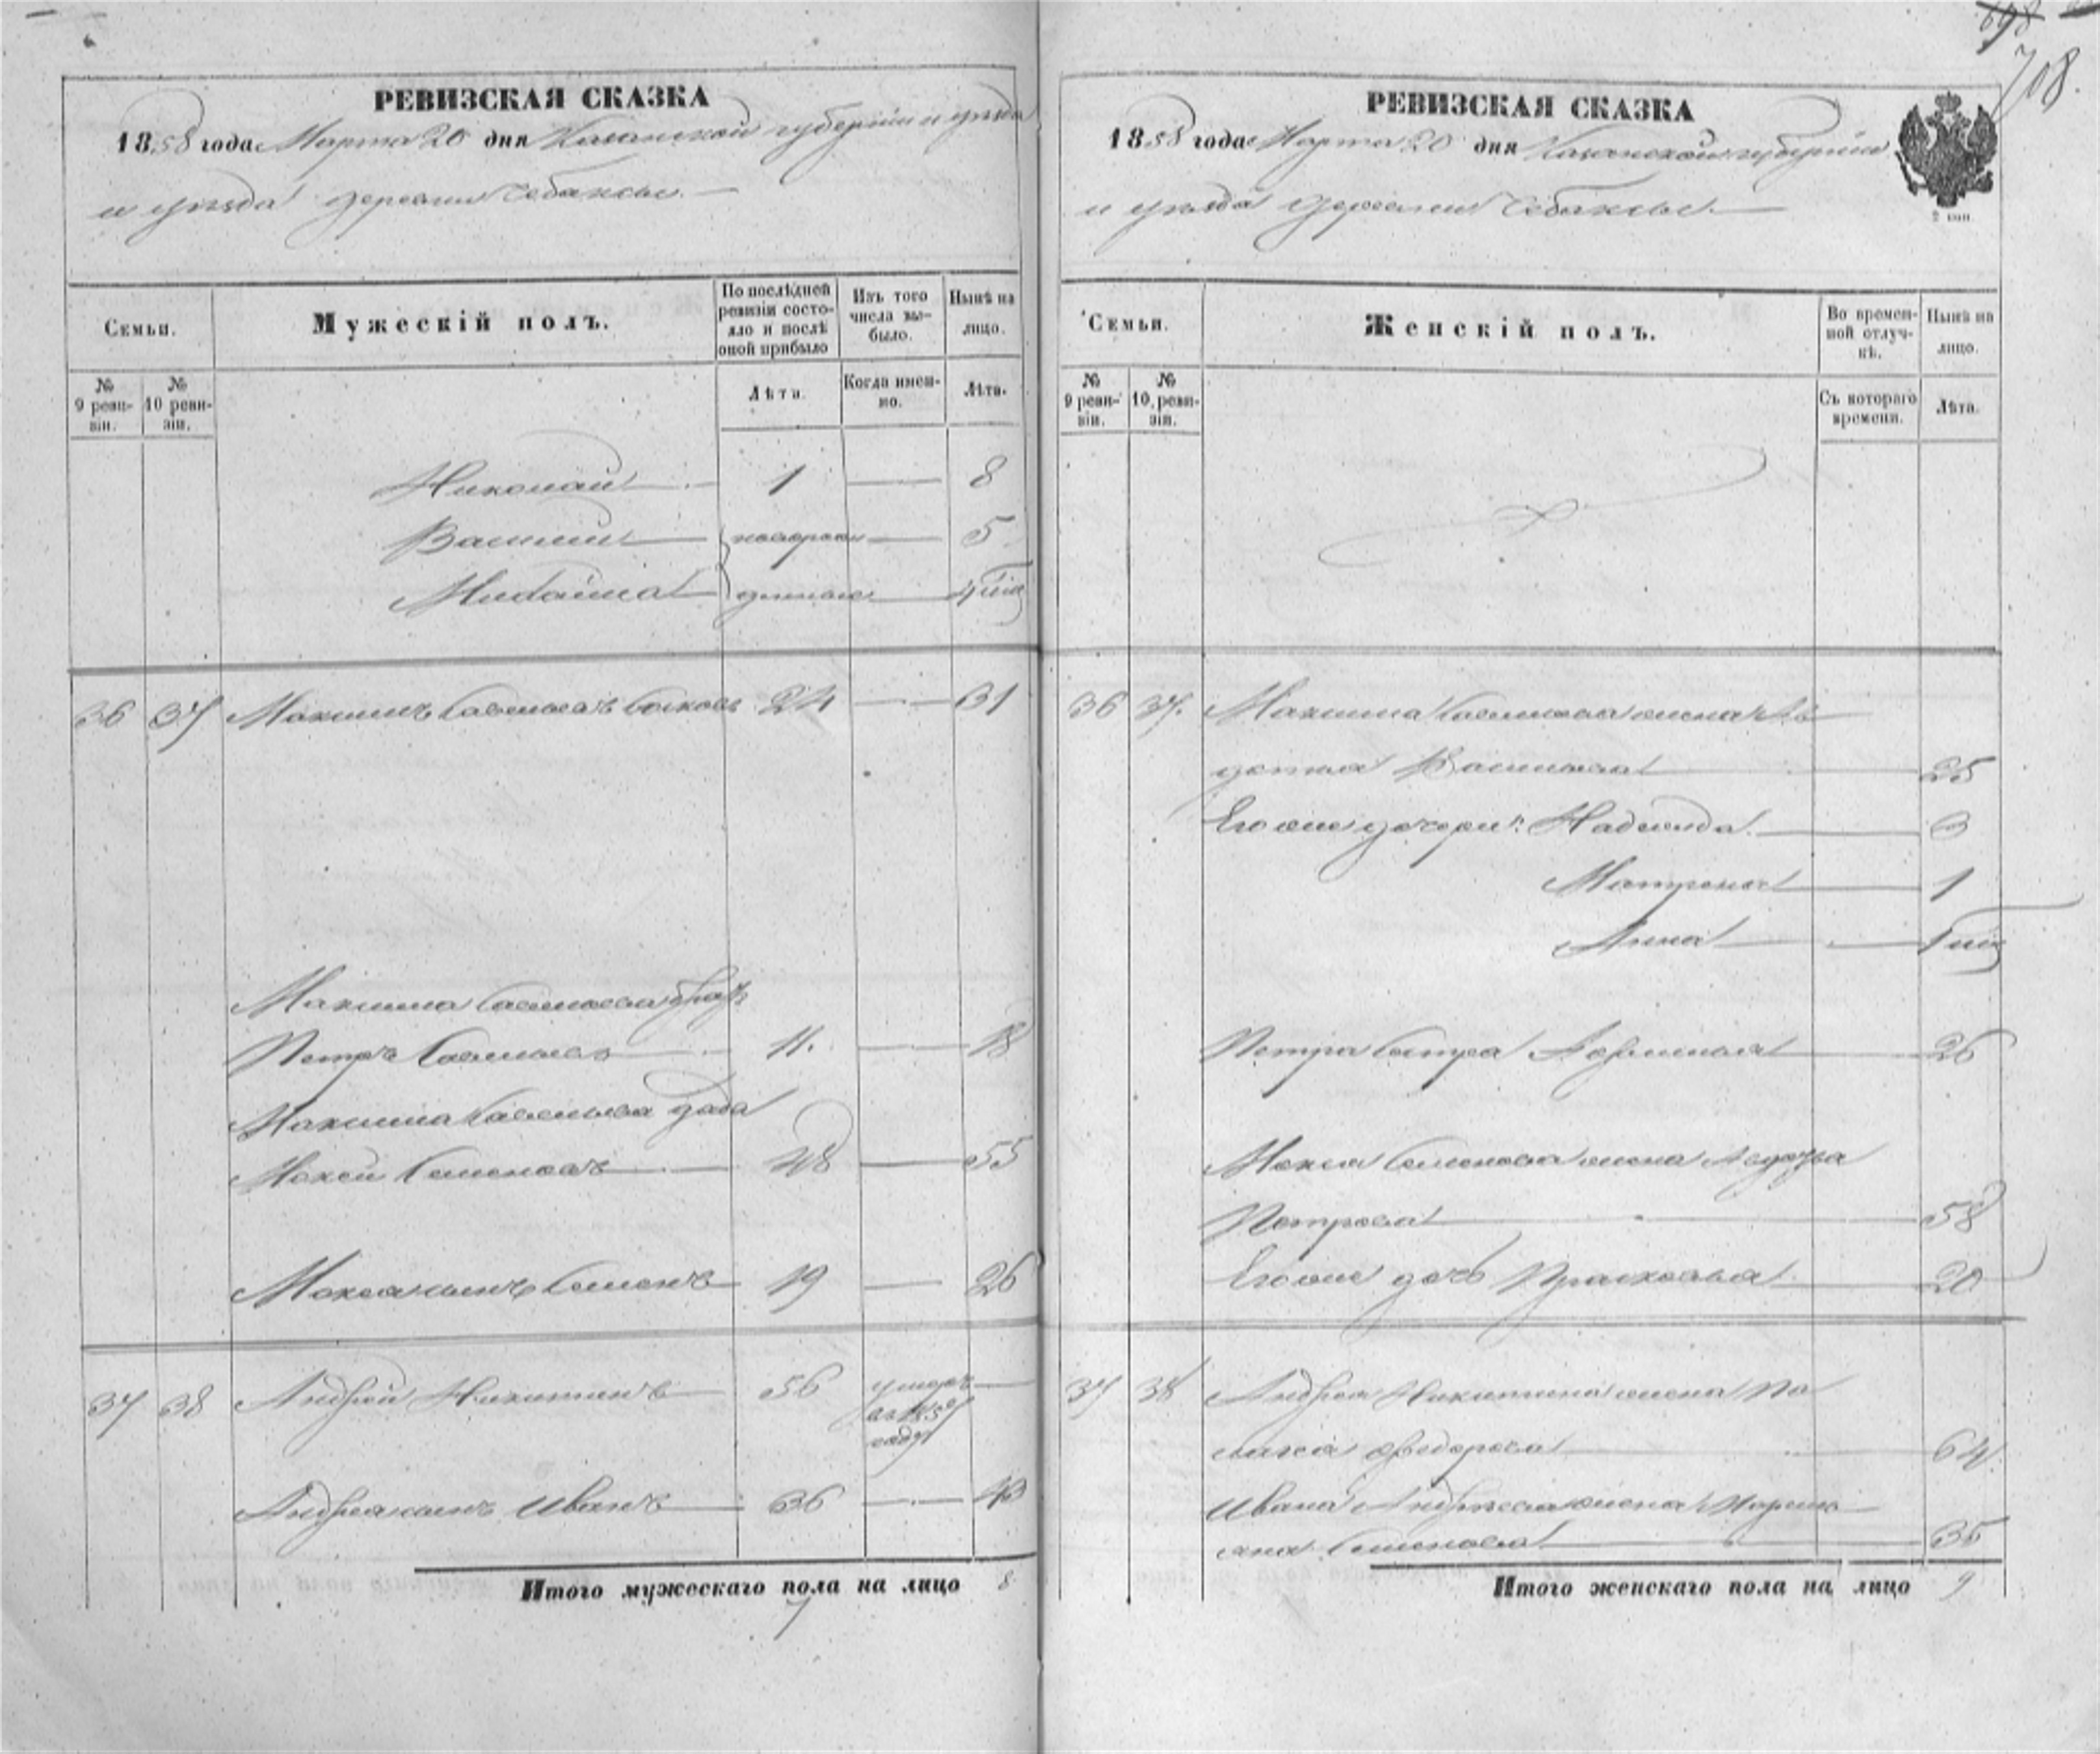 698
708.
РЕВИЗСКАЯ СКАЗКА
1858 года Марта 20 дня Казанской губерніи и уѣзда
и уѣзда деревни Чебаксы.
Семьи.
Мужескій полъ.
По послѣдней ревизіи состояло и послѣ оной прибыло
Изъ того числа выбыло.
Нынѣ на лицо.
№ 9 ревизіи.
№ 10 ревизіи.
Лѣта.
Когда именно.
Лѣта.
Николай 1 8
Василий новорож 5
Михаила денные 4
36 37 Максимъ Савельевъ 24 31
Максима Савельева братъ
Петръ Савельевъ 11. 18
Максима Савельева дядя
Мокей Семеновъ 48 55
Мокея сынъ Семенъ 19 26
37 38 Андрей Никитинъ 56 умеръ
въ 1857
году
Андрея сынъ Иванъ 36 43
Итого мужескаго пола на лицо 8
7
РЕВИЗСКАЯ СКАЗКА
1858 года Марта 20 дня Казанской губерніи
и уѣзда деревни Чебаксы.
2 коп.
Семьи.
Женскій полъ.
Во временной отлучкѣ.
Нынѣ на лицо.
№ 9 ревизіи.
№ 10 ревизіи.
Съ котораго времени.
Лѣта.
36 37. Максима Савельева жена Ав
дотья Васильева 25
Его же дочери: Надежда 3
Матрена 1
Анна
Петра сестра 26
Мокея Семенова жена Ѳедора
Петрова 58
Его же дочь Прасковья 20
37 38 Андрея Никитина жена Па
лагея Ѳедорова 64
Ивана Андреева жена Марь
яна Семенова 35
Итого женскаго пола на лицо 9